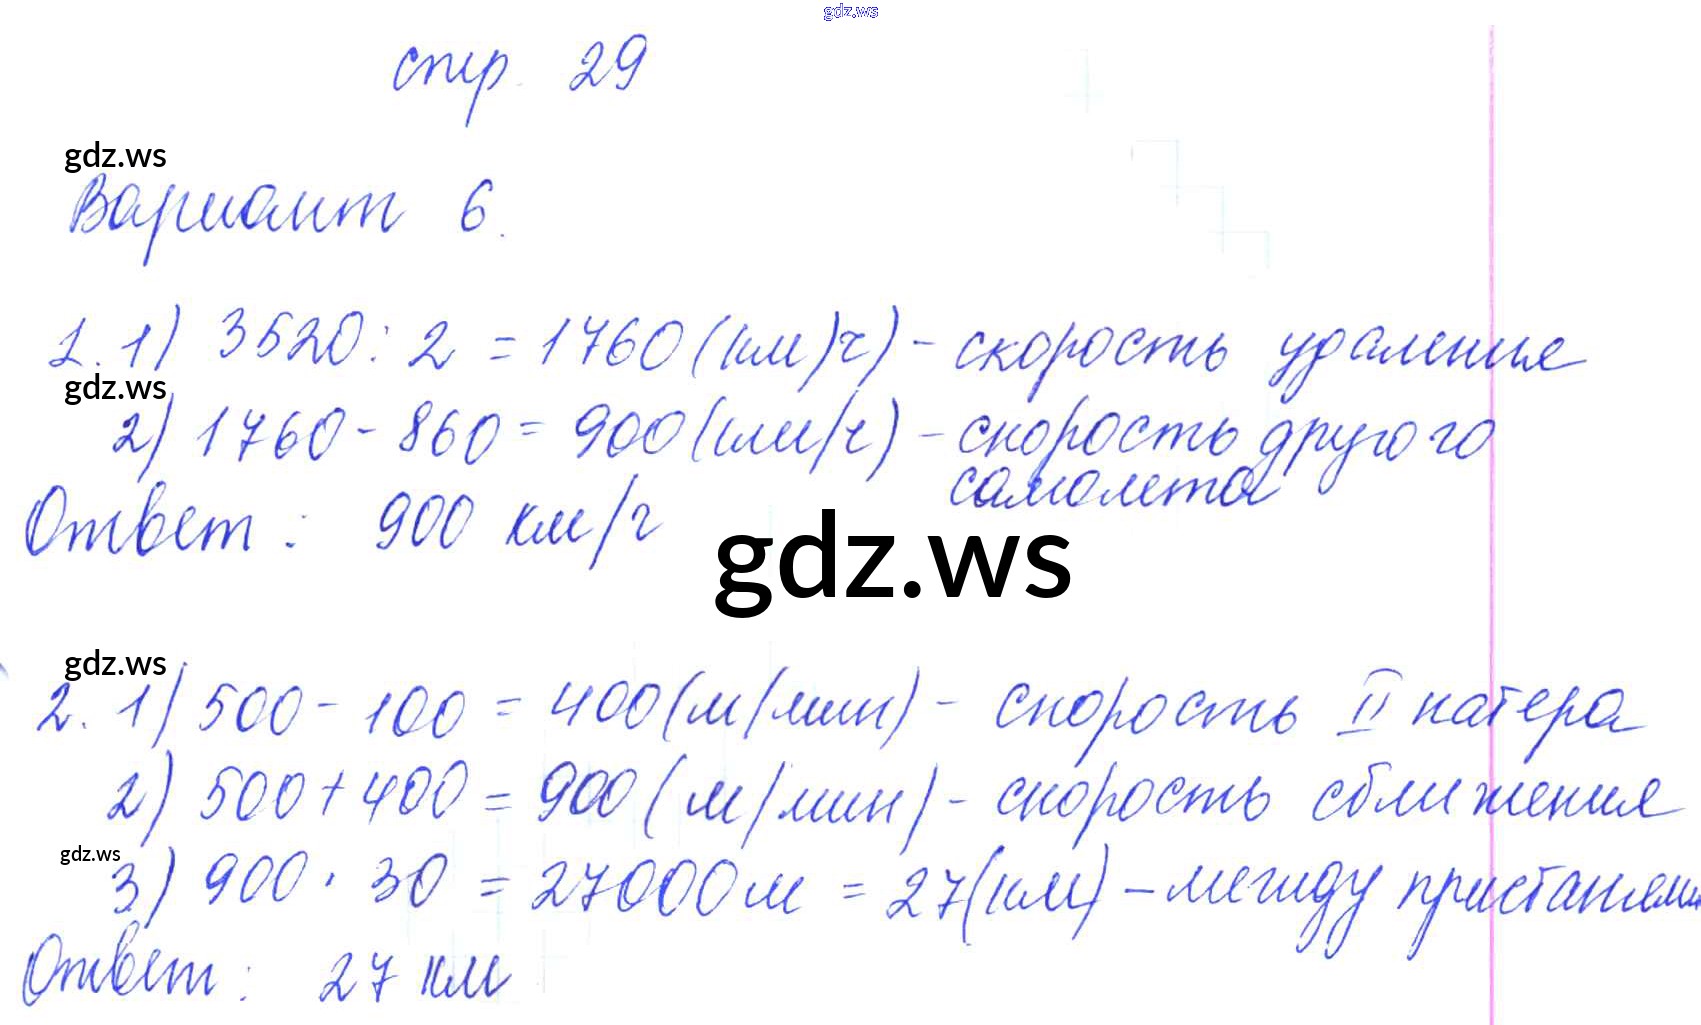 gdz.ws
стр. 29
gdz.ws
Вариант 6.
1. 1) 3520 : 2 = 1760 (км/ч) - скорость удаление
gdz.ws
2) 1760 - 860 = 900 (км/ч) - скорость другого
самолета
Ответ : 900 км/ч
gdz.ws
gdz.ws
2. 1) 500 - 100 = 400 (м/мин) - скорость II катера
2) 500 + 400 = 900 (м/мин) - скорость сближения
gdz.ws
3) 900 · 30 = 27000 м = 27 (км) - между пристанями
Ответ : 27 км